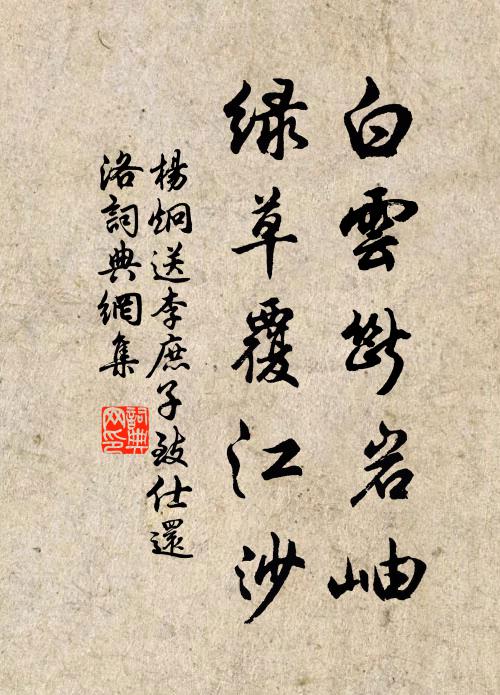 白雲斷岩岫
緑草覆江沙
楊炯送李庶子致仕還
洛詞典網集
詞典
网印